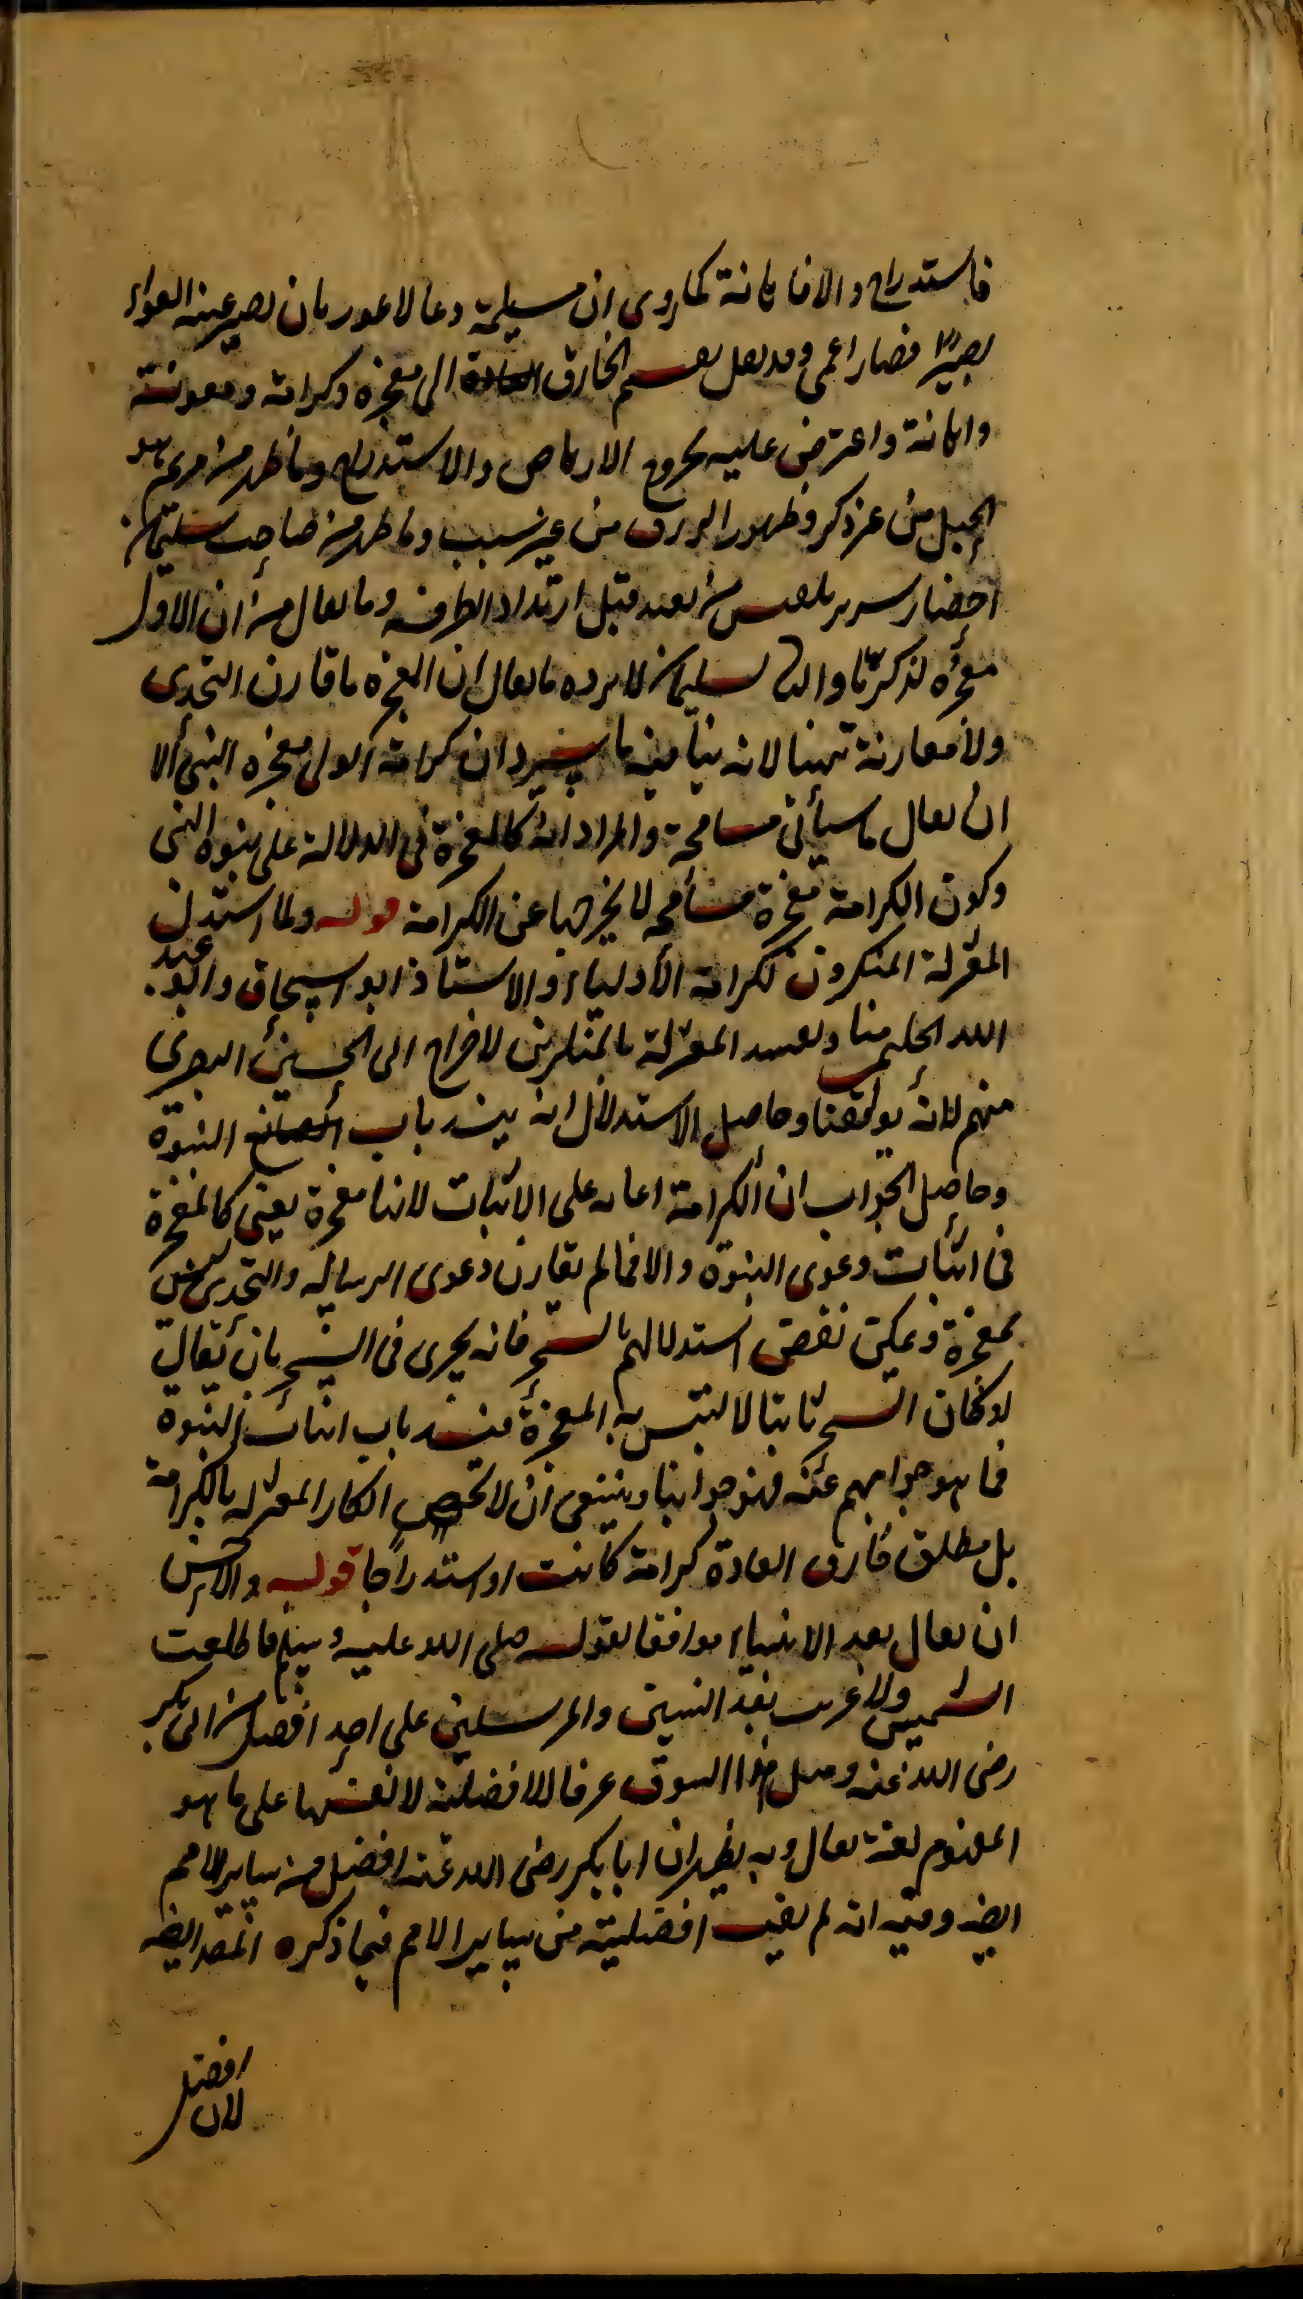 فاستدراج والا فاهانة كما روى ان مسيلمة دعا لاعور بان يصير عينه العوراء
بصيرا فصار اعمى وقد يعل يقسم الخارق العادة الى معجزة وكرامة ومعونة
واهانة واعترض عليه بخروج الارهاص والاستدراج وما ظهر من مريم هو
الحبل من غير ذكر وظهور الرزق من غير سبب وما ظهر من صاحب سليمان من
احضار سرير بلقيس من بعيد قبل ارتداد الطرف وما يقال من ان الاول
معجزة لزكريا والثاني لسليمان لا يرده ما يقال ان المعجزة ما قارن التحدى
ولا مقارنة ههنا لانه ينافيه ما سيرد ان كرامة الولى معجزة النبى الا
ان يقال ما سيأتى مسامحة والمراد انه كالمعجزة فى الدلالة على نبوة النبى
وكون الكرامة معجزة مسامحة لا يخرجها عن الكرامة قوله ولما استدل
المعتزلة المنكرون لكرامة الاولياء والاستاذ ابو اسحاق وابو عبد
الله الحليمى منا وتقييد المعتزلة بالمنكرين لاخراج ابى الحسين البصرى
منهم لانه يوافقنا وحاصل الاستدلال انه ينسد باب النبوة
وحاصل الجواب ان الكرامة اعانة على الاثبات لانها معجزة يعنى كالمعجزة
فى اثبات دعوى النبوة والا فما لم يقارن دعوى الرسالة والتحدى ليس
بمعجزة ويمكن نقض استدلالهم بالسحر فانه يجرى فى السحر بان يقال
لو كان السحر ثابتا لالتبس به المعجزة فينسد باب اثبات النبوة
فما هو جوابهم عنه فهو جوابنا وينبغى ان لا يخص انكار المعتزلة بالكرامة
بل مطلق خارق العادة كرامة كانت او استدراجا قوله والاحسن
ان يقال بعد الانبياء موافقا لقوله صلى الله عليه وسلم ما طلعت
الشمس ولا غربت بعد النبيين والمرسلين على احد افضل من ابى بكر
رضى الله عنه ومثل هذا السوق عرفا لافضلية لا نفيها على ما هو
المفهوم لغة يقال وبه يظهر ان ابا بكر رضى الله عنه افضل من ساير الامم
ايضه وفيه انه لم يفت افضلية من ساير الامم فيما ذكره المصه ايضه
افضل
لان